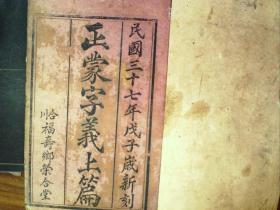 民國三十七年戊子歲新刻
正蒙字義上篇
合川福壽鄉榮合堂